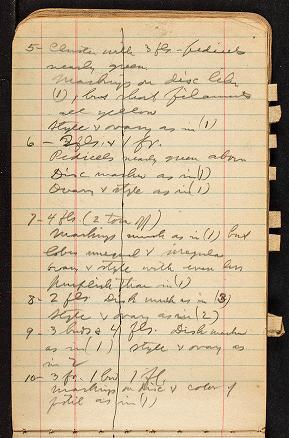 5- Cluster with 3 fls - pedicels
nearly green
Markings on disc like
(1), but short filaments
all yellow
Style & ovary as in (1)
6 - 2 fls. & 1 fr.
Pedicels nearly green above
Disc marker as in (1)
Ovary & style as in (1)
7- 4 fls. (2 torn off)
Markings much as in (1) but
lobes unequal & irregular
ovary & style with even less
purplish than in (1)
8- 2 fls. Disk much as in (3)
Style & ovary as in (2)
9- 3 buds & 4 fls. Disk marker
as in (1) Style & ovary as
in 2
10- 3 fr. 1 bud 1 fl.
markings on disc & color of
as in (1)